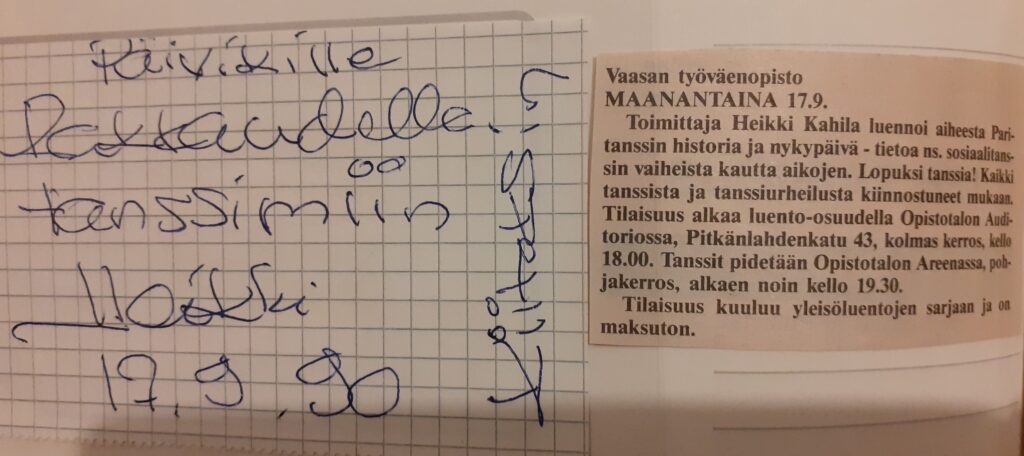 Päivikille
Rakkaudelle.
tanssimiin
Heikki
17.9.90
Vaasan työväenopisto
MAANANTAINA 17.9.
Toimittaja Heikki Kahila luennoi aiheesta Pari-
tanssin historia ja nykypäivä - tietoa ns. sosiaalitans-
sin vaiheista kautta aikojen. Lopuksi tanssia! Kaikki
tanssista ja tanssiurheilusta kiinnostuneet mukaan.
Tilaisuus alkaa luento-osuudella Opistotalon Audi-
toriossa, Pitkänlahdenkatu 43, kolmas kerros, kello
18.00. Tanssit pidetään Opistotalon Areenassa, poh-
jakerros, alkaen noin kello 19.30.
Tilaisuus kuuluu yleisöluentojen sarjaan ja on
maksuton.